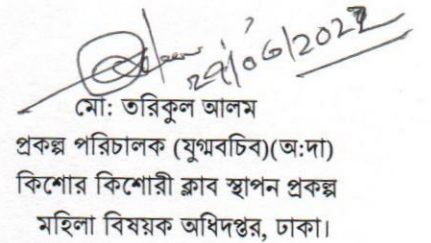 ২৯/০৬/২০২২
মো: তরিকুল আলম
প্রকল্প পরিচালক (যুগ্মবচিব)(অ:দা)
কিশোর কিশোরী ক্লাব স্থাপন প্রকল্প
মহিলা বিষয়ক অধিদপ্তর, ঢাকা।